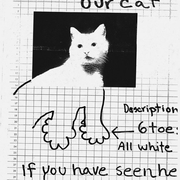 our cat
Description
6 toe:
All white
If you have seen he